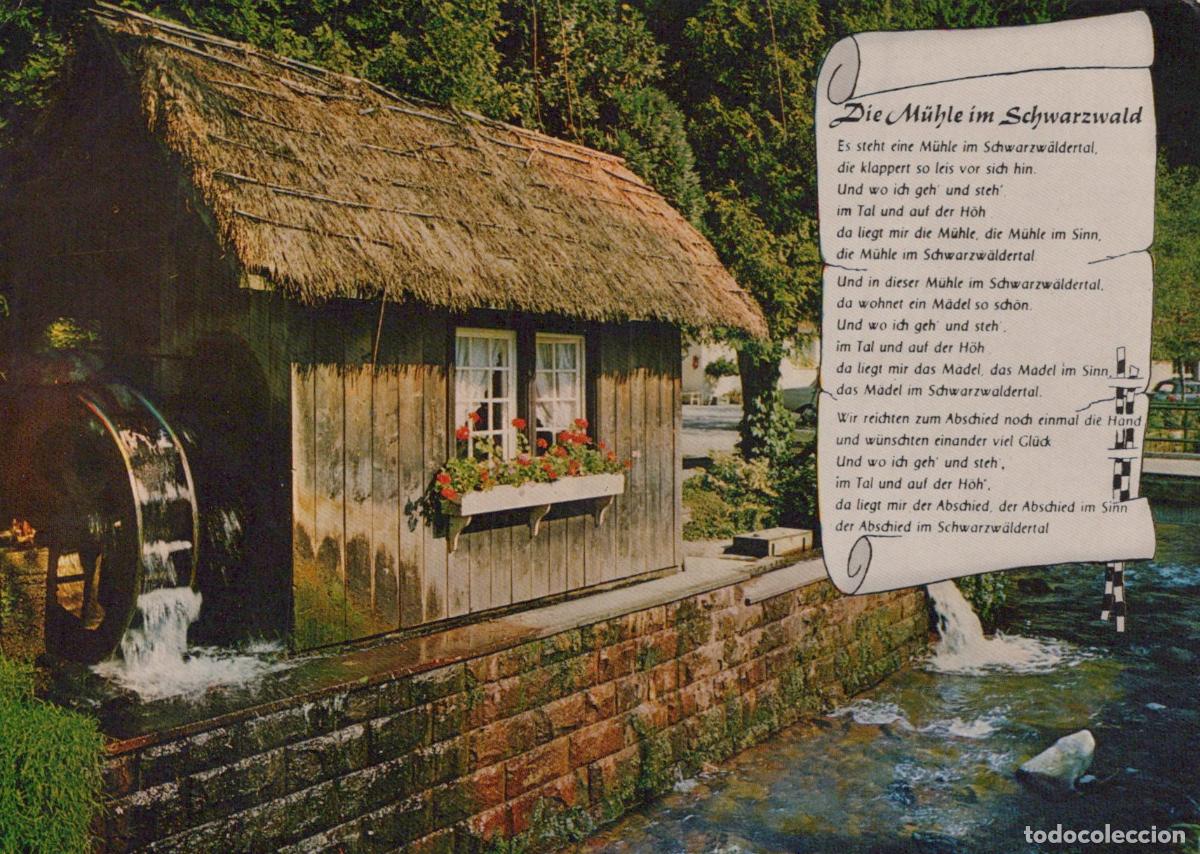 Die Mühle im Schwarzwald
Es steht eine Mühle im Schwarzwäldertal,
die klappert so leis vor sich hin.
Und wo ich geh' und steh'
im Tal und auf der Höh
da liegt mir die Mühle, die Mühle im Sinn,
die Mühle im Schwarzwäldertal
Und in dieser Mühle im Schwarzwäldertal,
da wohnet ein Mädel so schön.
Und wo ich geh' und steh',
im Tal und auf der Höh
da liegt mir das Mädel, das Mädel im Sinn,
das Mädel im Schwarzwäldertal.
Wir reichten zum Abschied noch einmal die Hand
und wünschten einander viel Glück
Und wo ich geh' und steh',
im Tal und auf der Höh',
da liegt mir der Abschied, der Abschied im Sinn
der Abschied im Schwarzwäldertal
todocoleccion